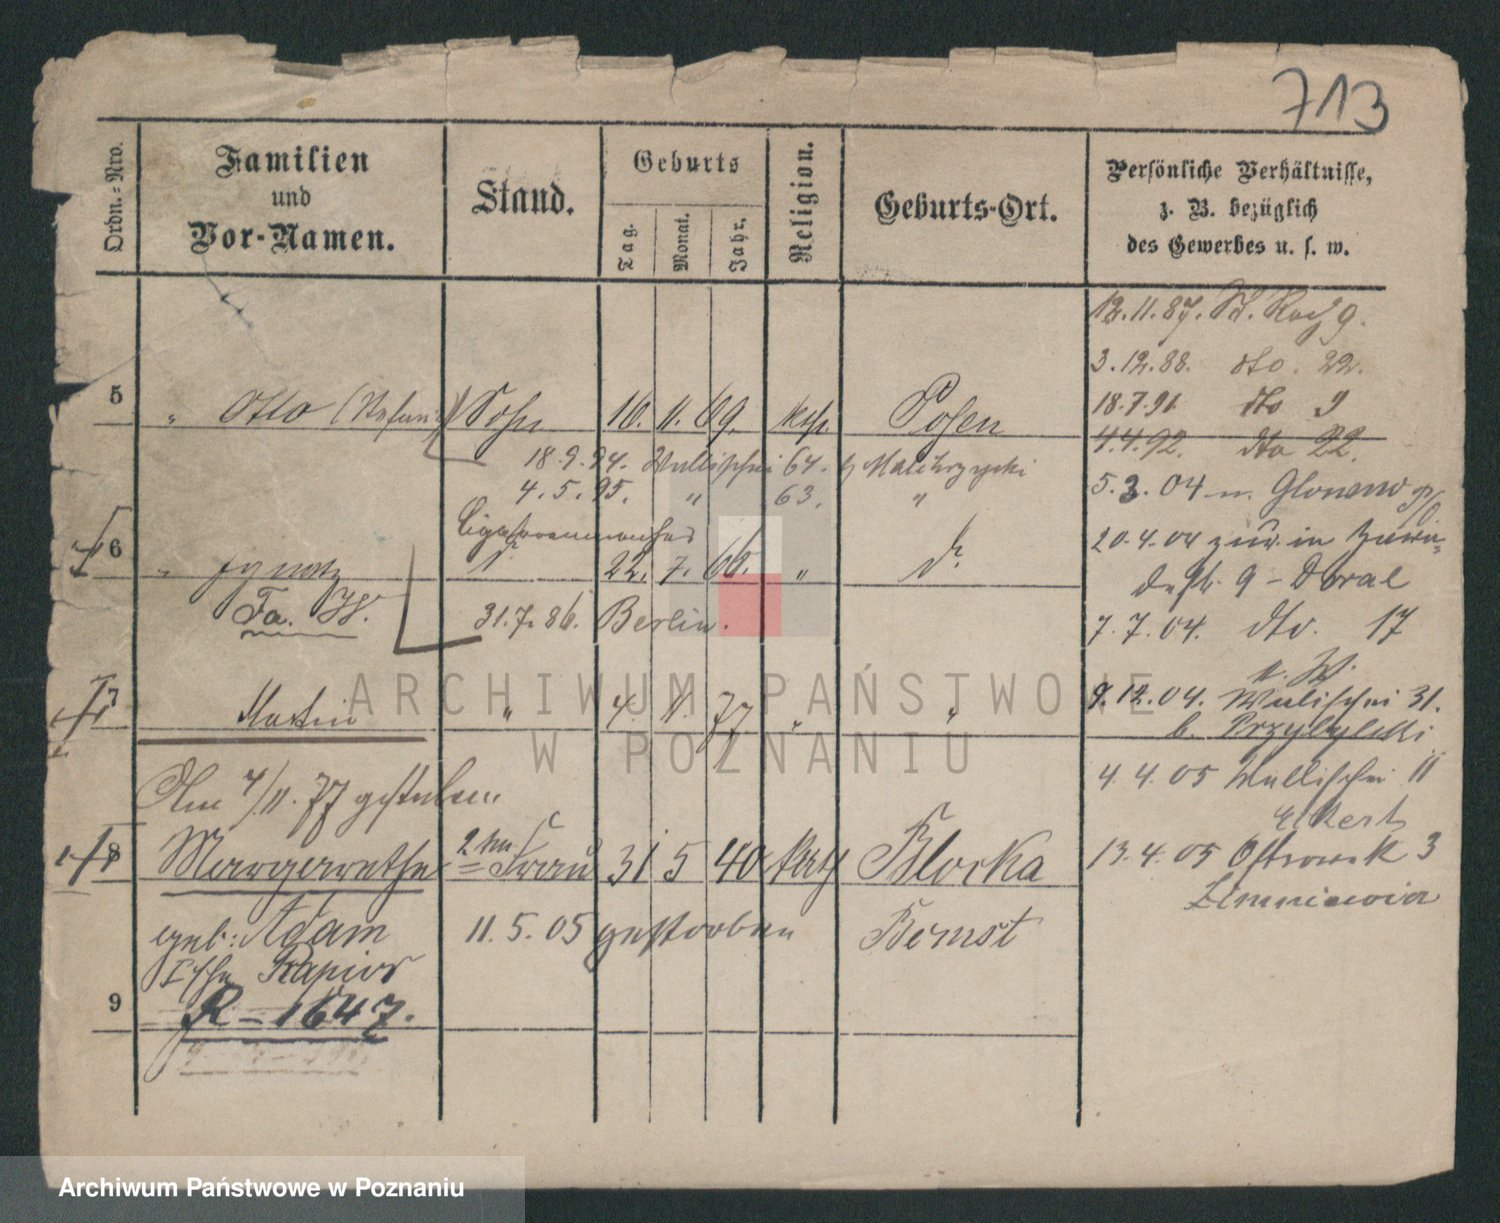 713
Ordn.-Nro.
Familien
und
Vor-Namen.
Stand.
Geburts
Tag.
Monat.
Jahr.
Religion.
Geburts-Ort.
Persönliche Verhältnisse,
z. B. bezüglich
des Gewerbes u. s. w.
12.11.87. St. Roch 9.
3.12.88. dto. 22.
18.7.91. dto 9
4.4.92. dto 22.
5 " Otto (Stefan) Sohn 10. 11. 69. kath. Posen
18.9.94. Wallischei 64. b Malchrzycki
4.5.95. " 63. "
5.3.04 n. Glowno
20.4.04 zur. in
9 - Doral
6 " Ignatz 22. 7. 68. " d.
Fa. W.
31.7.86. Berlin.
7.7.04. dto. 17
7 Martin " 4. 11. 77 " "
9.12.04. Wallischei 31.
b. Przybylski
Am 4/11.77 gestorben
4.4.05 Wallischei 11
Eckert
8 Margarethe 2te Frau 31 5 40 kath Blocka
13.4.05 Ostrowek 3
Zimniewicz
geb: Adam
11.5.05 gestorben
Bernst
9 R - 1647.
ARCHIWUM PAŃSTWOWE
W POZNANIU
Archiwum Państwowe w Poznaniu